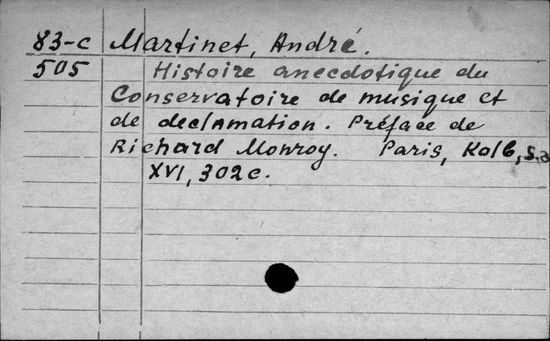 83-c Martinet, André.
505 Histoire anecdotique du
Conservatoire de musique et
de declamation. Préface de
Richard Monroy. Paris, Kolb, s.a
XVI, 302 c.